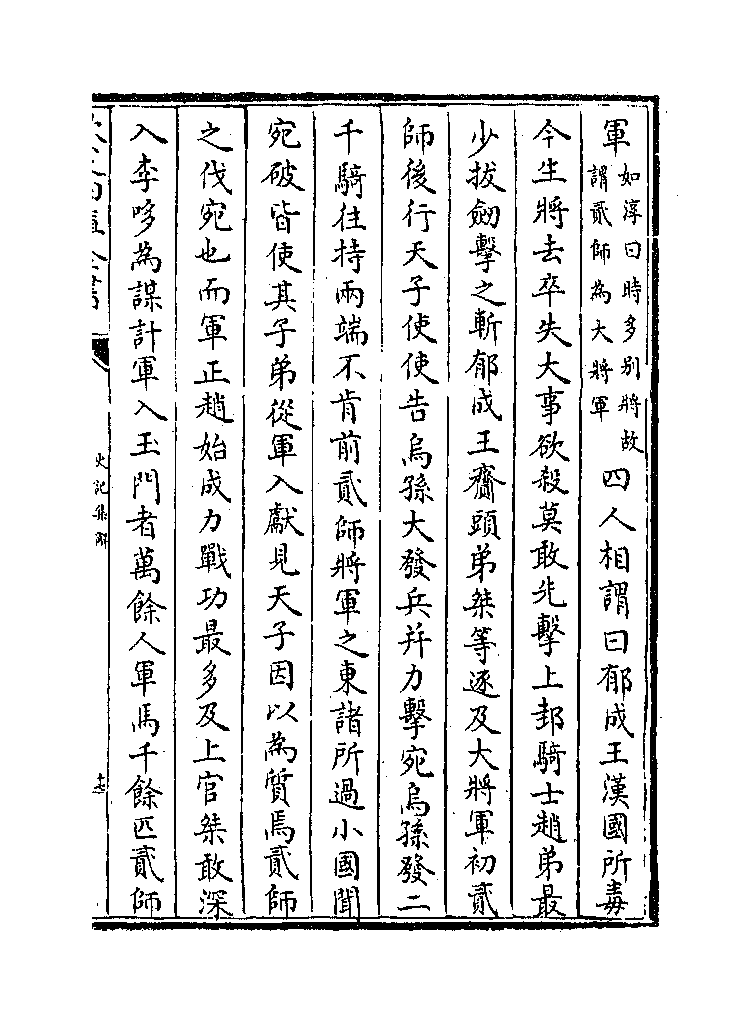 軍如淳曰時多别將故謂貳師為大將軍四人相謂曰郁成王漢國所毒
今生將去卒失大事欲殺莫敢先擊上邽騎士趙弟最
少拔劔擊之斬郁成王齎頭弟桀等逐及大將軍初貳
師後行天子使使告烏孫大發兵并力擊宛烏孫發二
千騎往持兩端不肯前貳師將軍之東諸所過小國聞
宛破皆使其子弟從軍入獻見天子因以為質焉貳師
之伐宛也而軍正趙始成力戰功最多及上官桀敢深
入李哆為謀計軍入玉門者萬餘人軍馬千餘匹貳師
史記集解